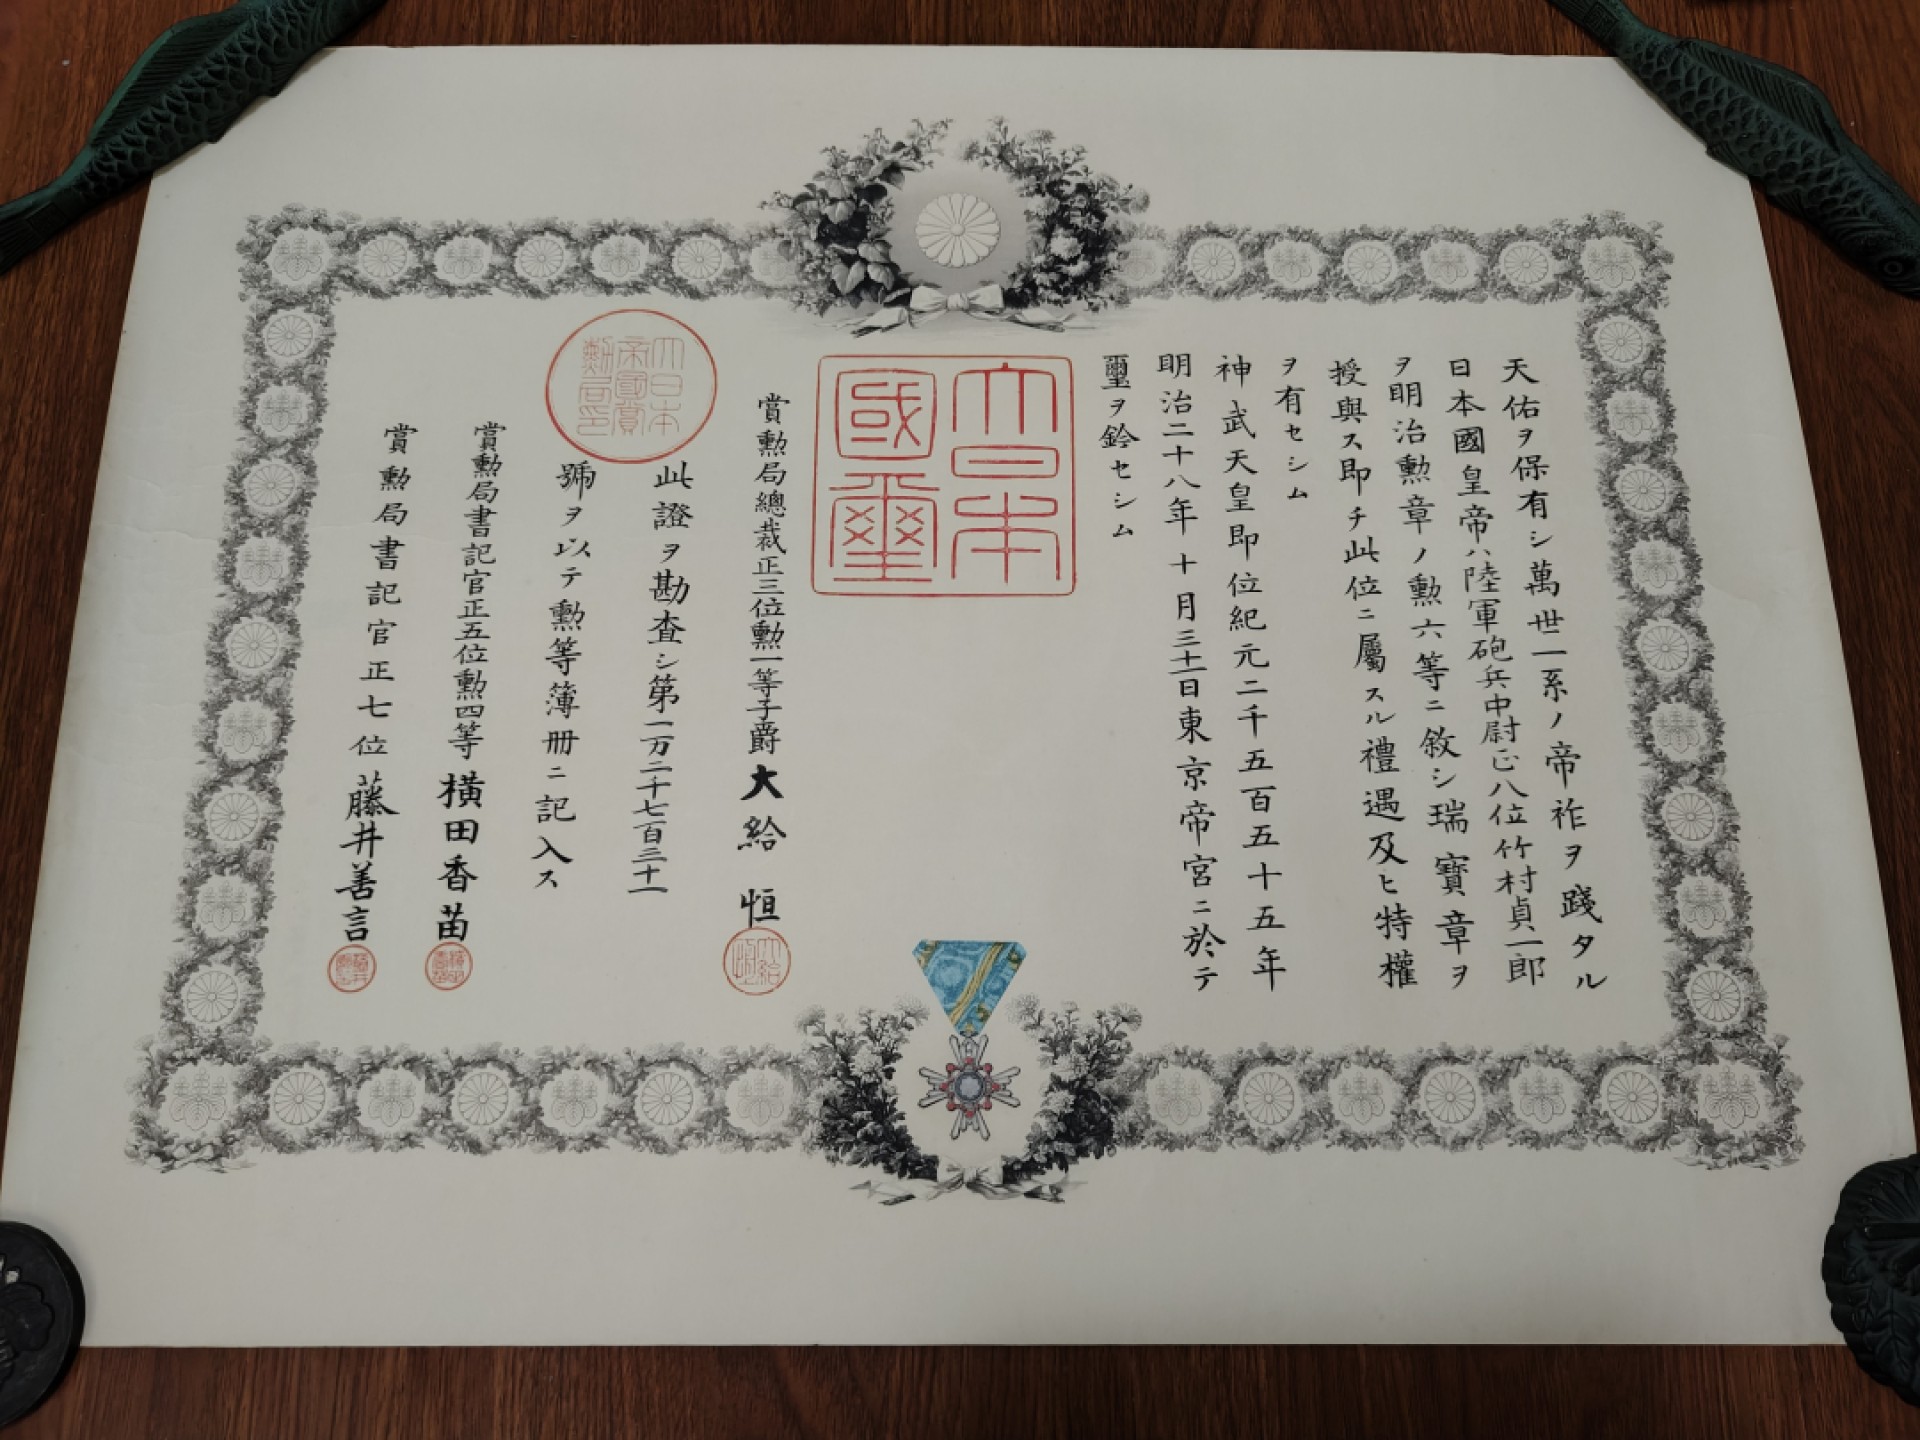 天佑ヲ保有シ萬世一系ノ帝祚ヲ踐タル
日本國皇帝ハ陸軍砲兵中尉正八位竹村貞一郎
ヲ明治勲章ノ勲六等ニ敘シ瑞寶章ヲ
授與ス即チ此位ニ屬スル禮遇及ヒ特權
ヲ有セシム
神武天皇即位紀元二千五百五十五年
明治二十八年十月三十一日東京帝宮ニ於テ
璽ヲ鈐セシム
大日本
國璽
賞勲局總裁正三位勲一等子爵大給恒
大日本
帝國賞
勲局印
此證ヲ勘査シ第一万二千七百三十一
號ヲ以テ勲等簿冊ニ記入ス
賞勲局書記官正五位勲四等橫田香苗
賞勲局書記官正七位藤井善言